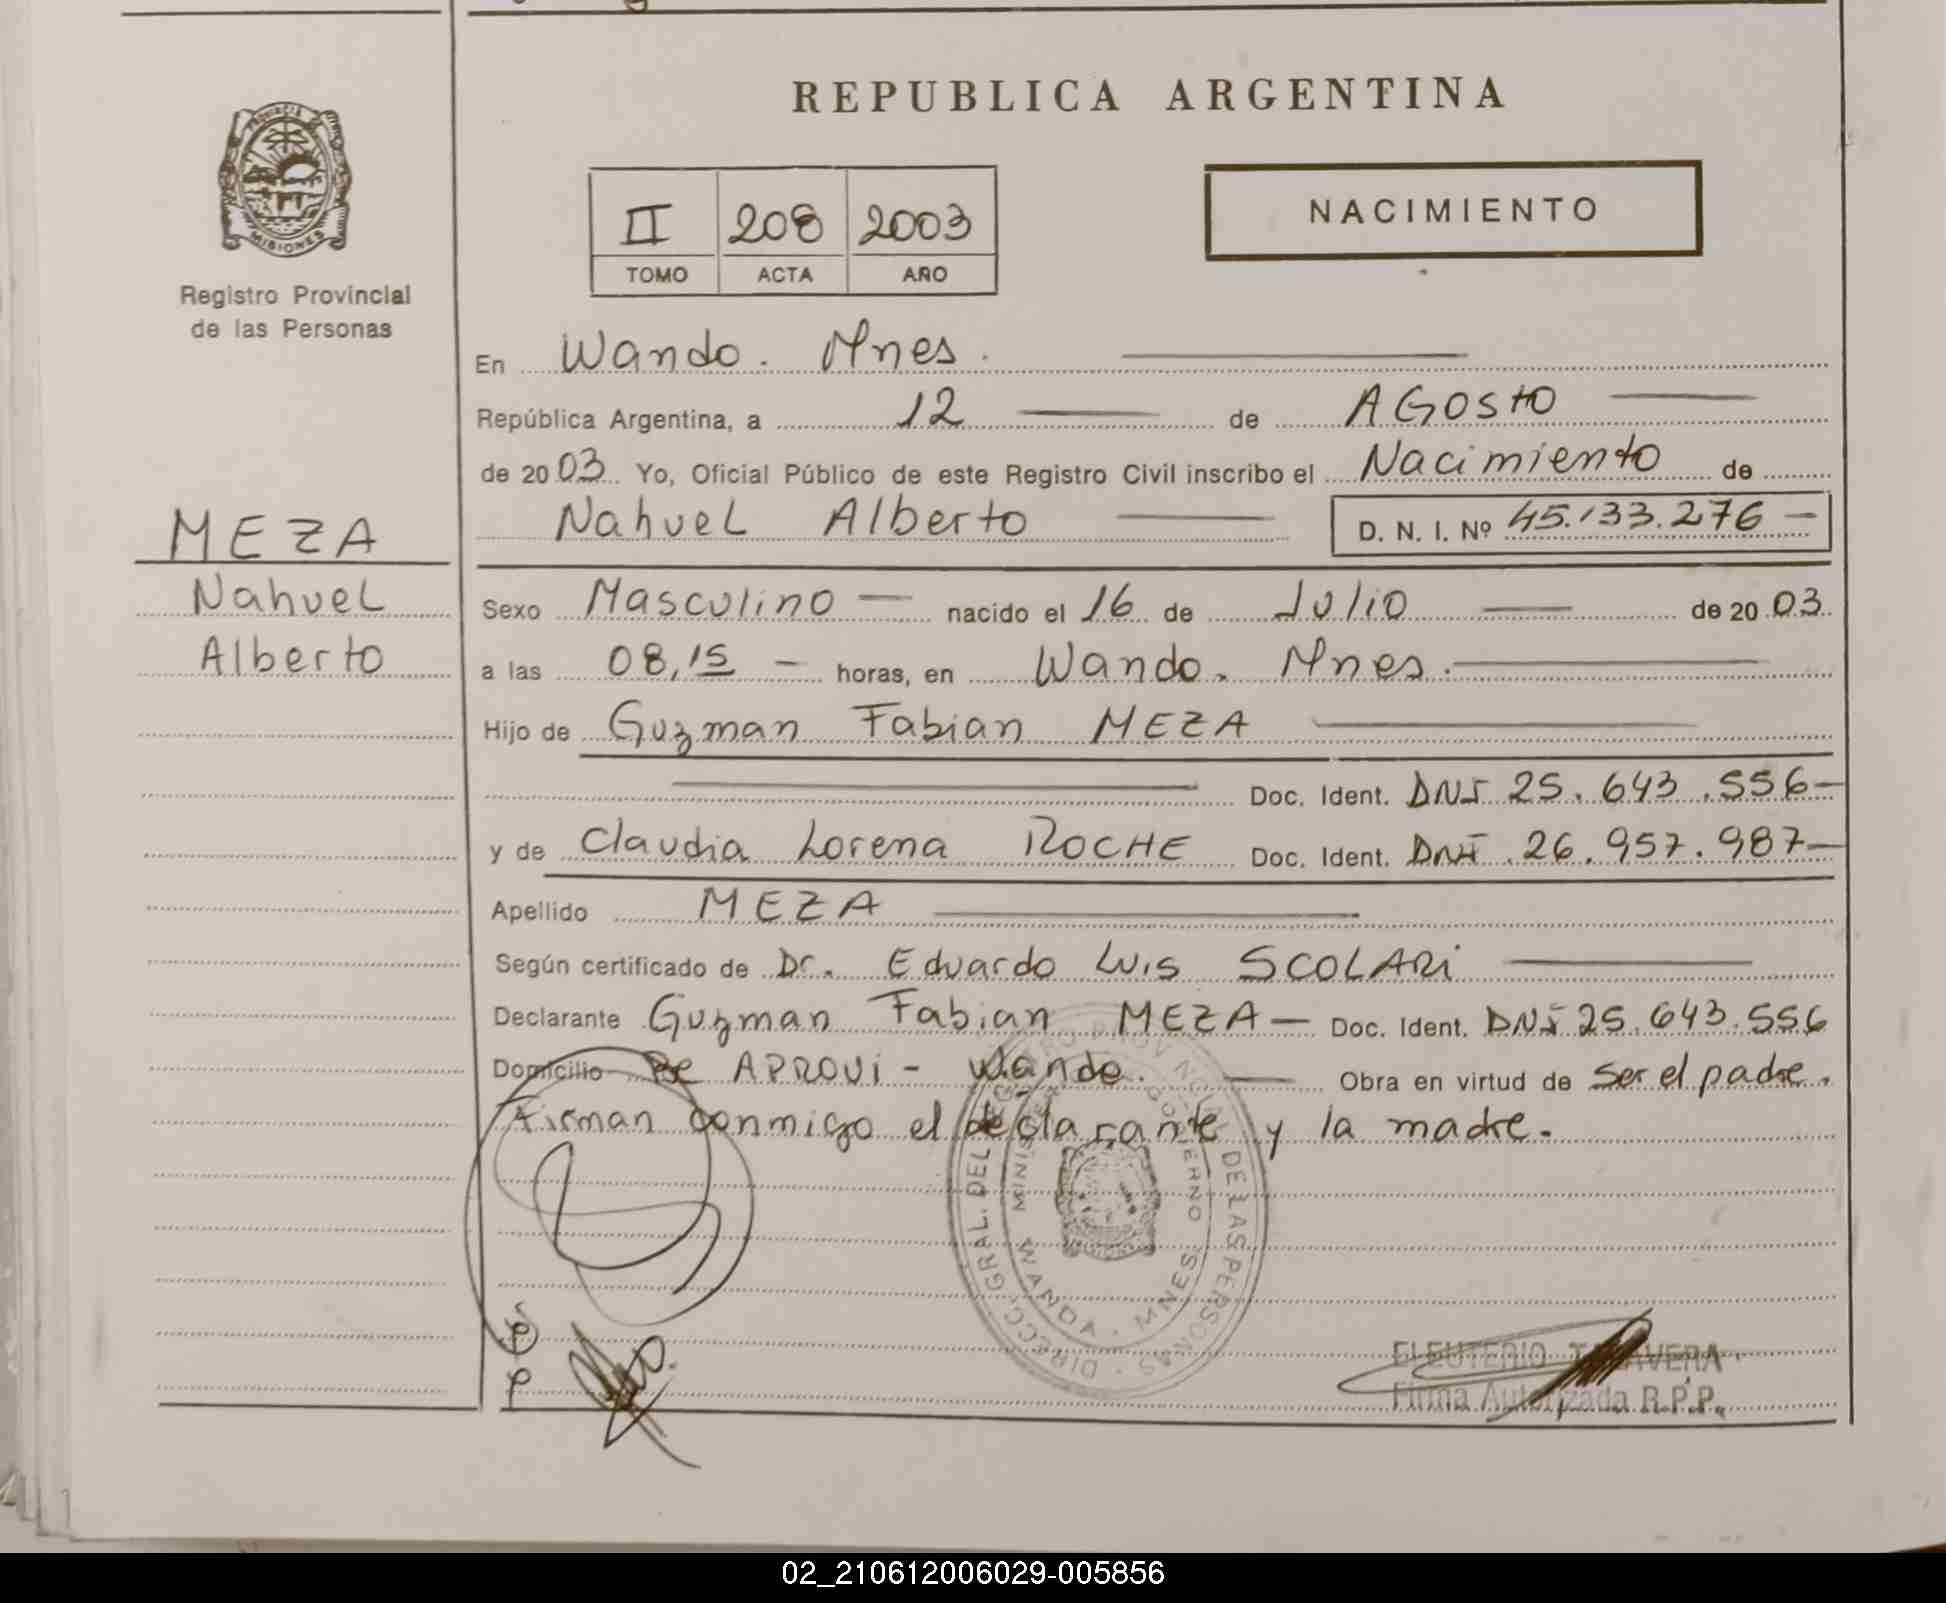 REPUBLICA ARGENTINA
PROVINCIA
MISIONES
Registro Provincial
de las Personas
II 208 2003
TOMO ACTA AÑO
NACIMIENTO
En Wanda. Mnes.
República Argentina, a 12 de AGosto
de 2003 Yo, Oficial Público de este Registro Civil inscribo el Nacimiento de
Nahuel Alberto D. N. I. Nº 45.133.276 -
MEZA
Nahuel
Alberto
Sexo Masculino - nacido el 16 de Julio de 2003
a las 08,15 - horas, en Wanda. Mnes.
Hijo de Guzman Fabian MEZA
Doc. Ident. DNI 25.643.556-
y de Claudia Lorena ROCHE Doc. Ident. DNI 26.957.987-
Apellido MEZA
Según certificado de Dr. Eduardo Luis SCOLARI
Declarante Guzman Fabian MEZA - Doc. Ident. DNI 25.643.556
Domicilio APROVI - Wanda. Obra en virtud de Ser el padre.
Firman conmigo el declarante y la madre.
DIRECC. GRAL. DEL REGISTRO PROVINCIAL DE LAS PERSONAS
MINISTER GOBIERNO
WANDA - MNES.
ELEUTERIO TALAVERA
Firma Autorizada R.P.P.
02_210612006029-005856